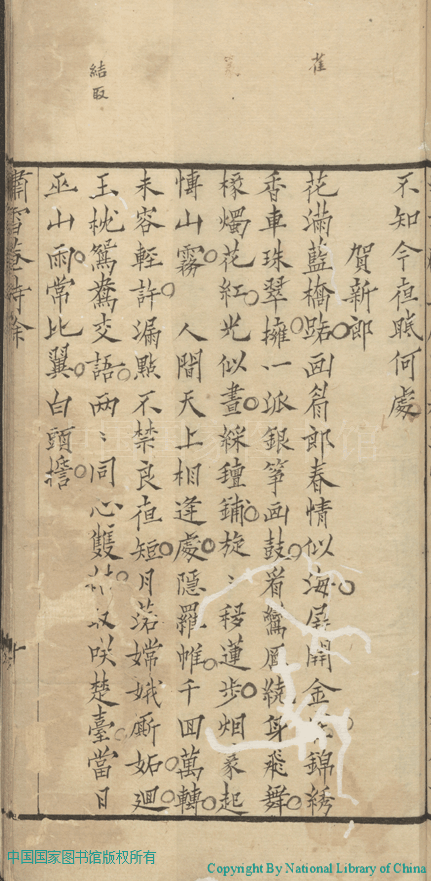 雀
結取
不知今亱眠何處
賀新郎
花滿藍橋路画眉郎春情似海屏開金錦綉
香車珠翠擁一派銀箏画鼓看鸞凰繞身飛舞
椽燭花紅光似晝綵氊鋪旋〻移蓮步烟篆起
愽山霧　人間天上相逢處隱羅帷千囬萬轉
未容輕許漏點不禁良亱短月落嫦娥厮妬迴
玉枕鴛鴦交語兩〻同心雙取咲楚臺當日
巫山雨常比翼白頭擔
嘯雪菴詩餘
十
中国国家图书馆版权所有
Copyright By National Library of China